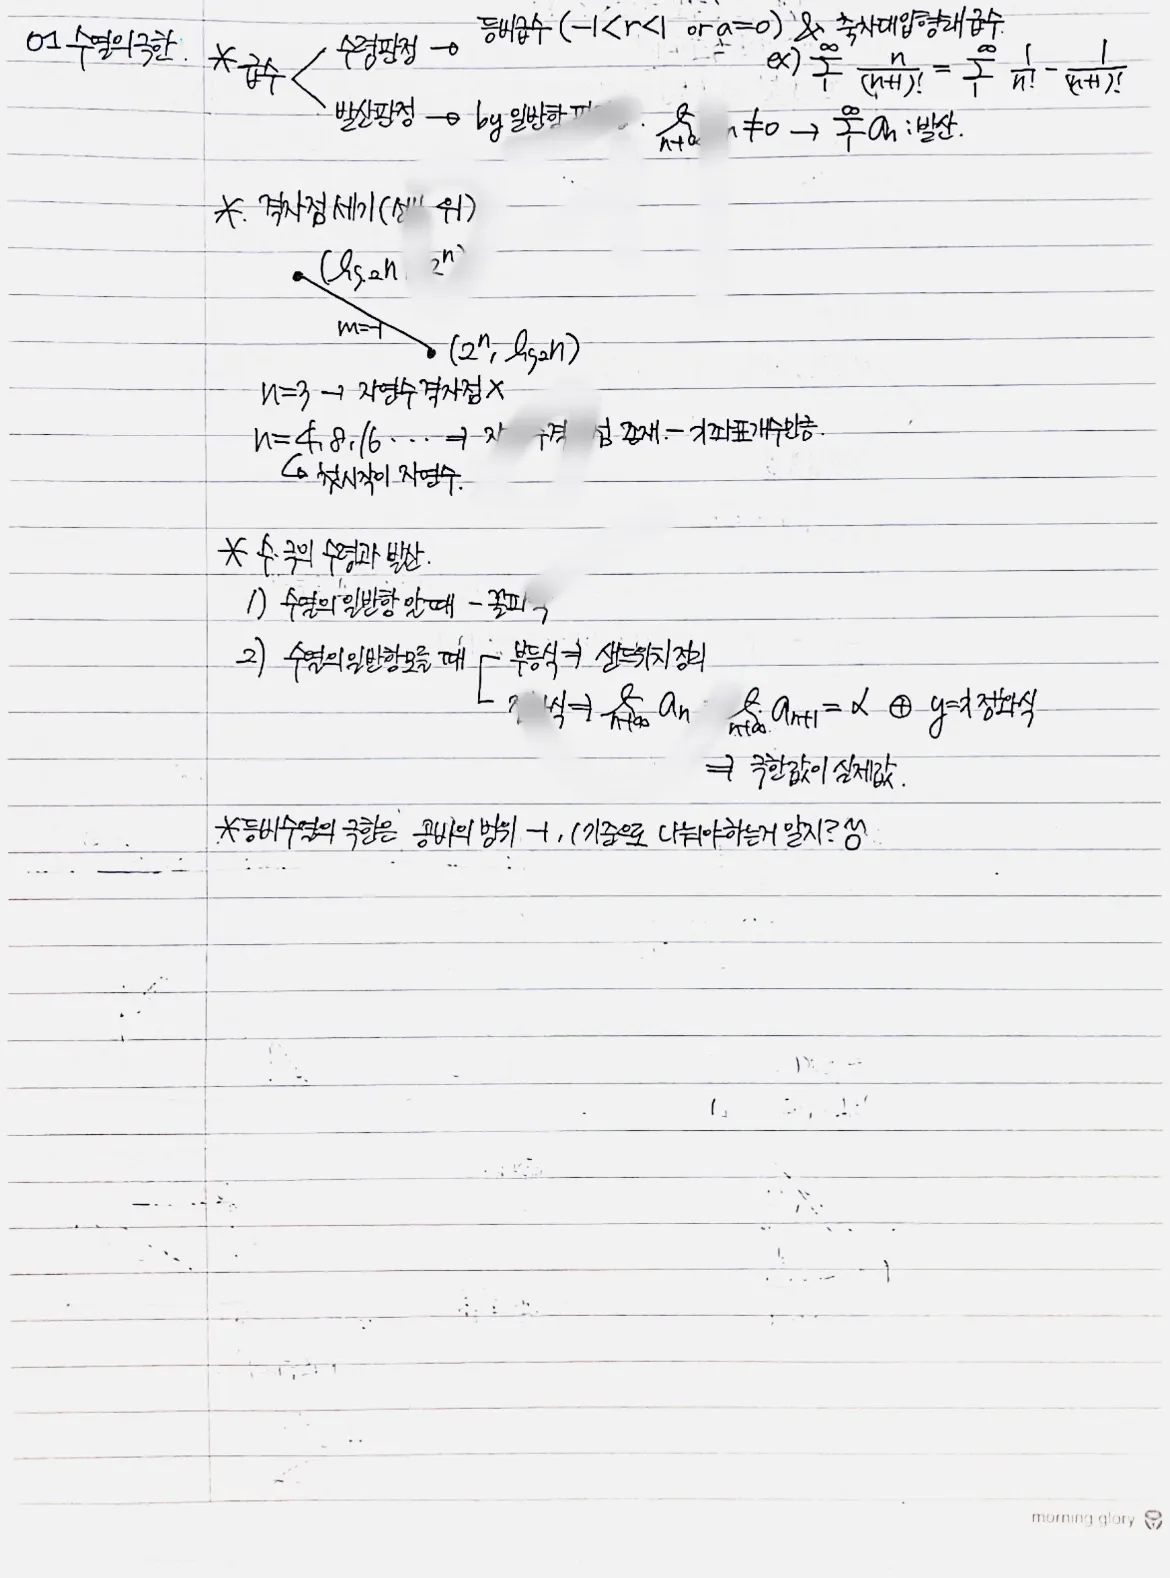 01 수열의 극한.
* 급수
수렴판정 → 등비급수 (-1<r<1 or a=0) & 축차대입형태급수.
ex) ∞Σ1 n/(n+1)! = ∞Σ1 1/n! - 1/(n+1)!
발산판정 → by 일반항 n≠0 → ∞Σ1 an : 발산.
*. 격자점 세기 ( 위)
(log2n 2ⁿ)
m=-1
(2ⁿ, log2n)
n=3 → 자연수 격자점 X
n=4, 8, 16 .... ⇒ 존재. - x좌표 개수만큼.
↳ 첫시작이 자연수.
* 수.극의 수렴과 발산.
1) 수열의 일반항 알 때 -
2) 수열의 일반항 모를 때
부등식 ⇒ 샌드위치 정리
식 ⇒ lim n→∞ an lim n→∞ an+1 = α ⊕ y=x 정화식
⇒ 극한값이 실제값.
* 등비수열의 극한은 공비의 범위 -1, 1 기준으로 나눠야하는거 알지?
morning glory